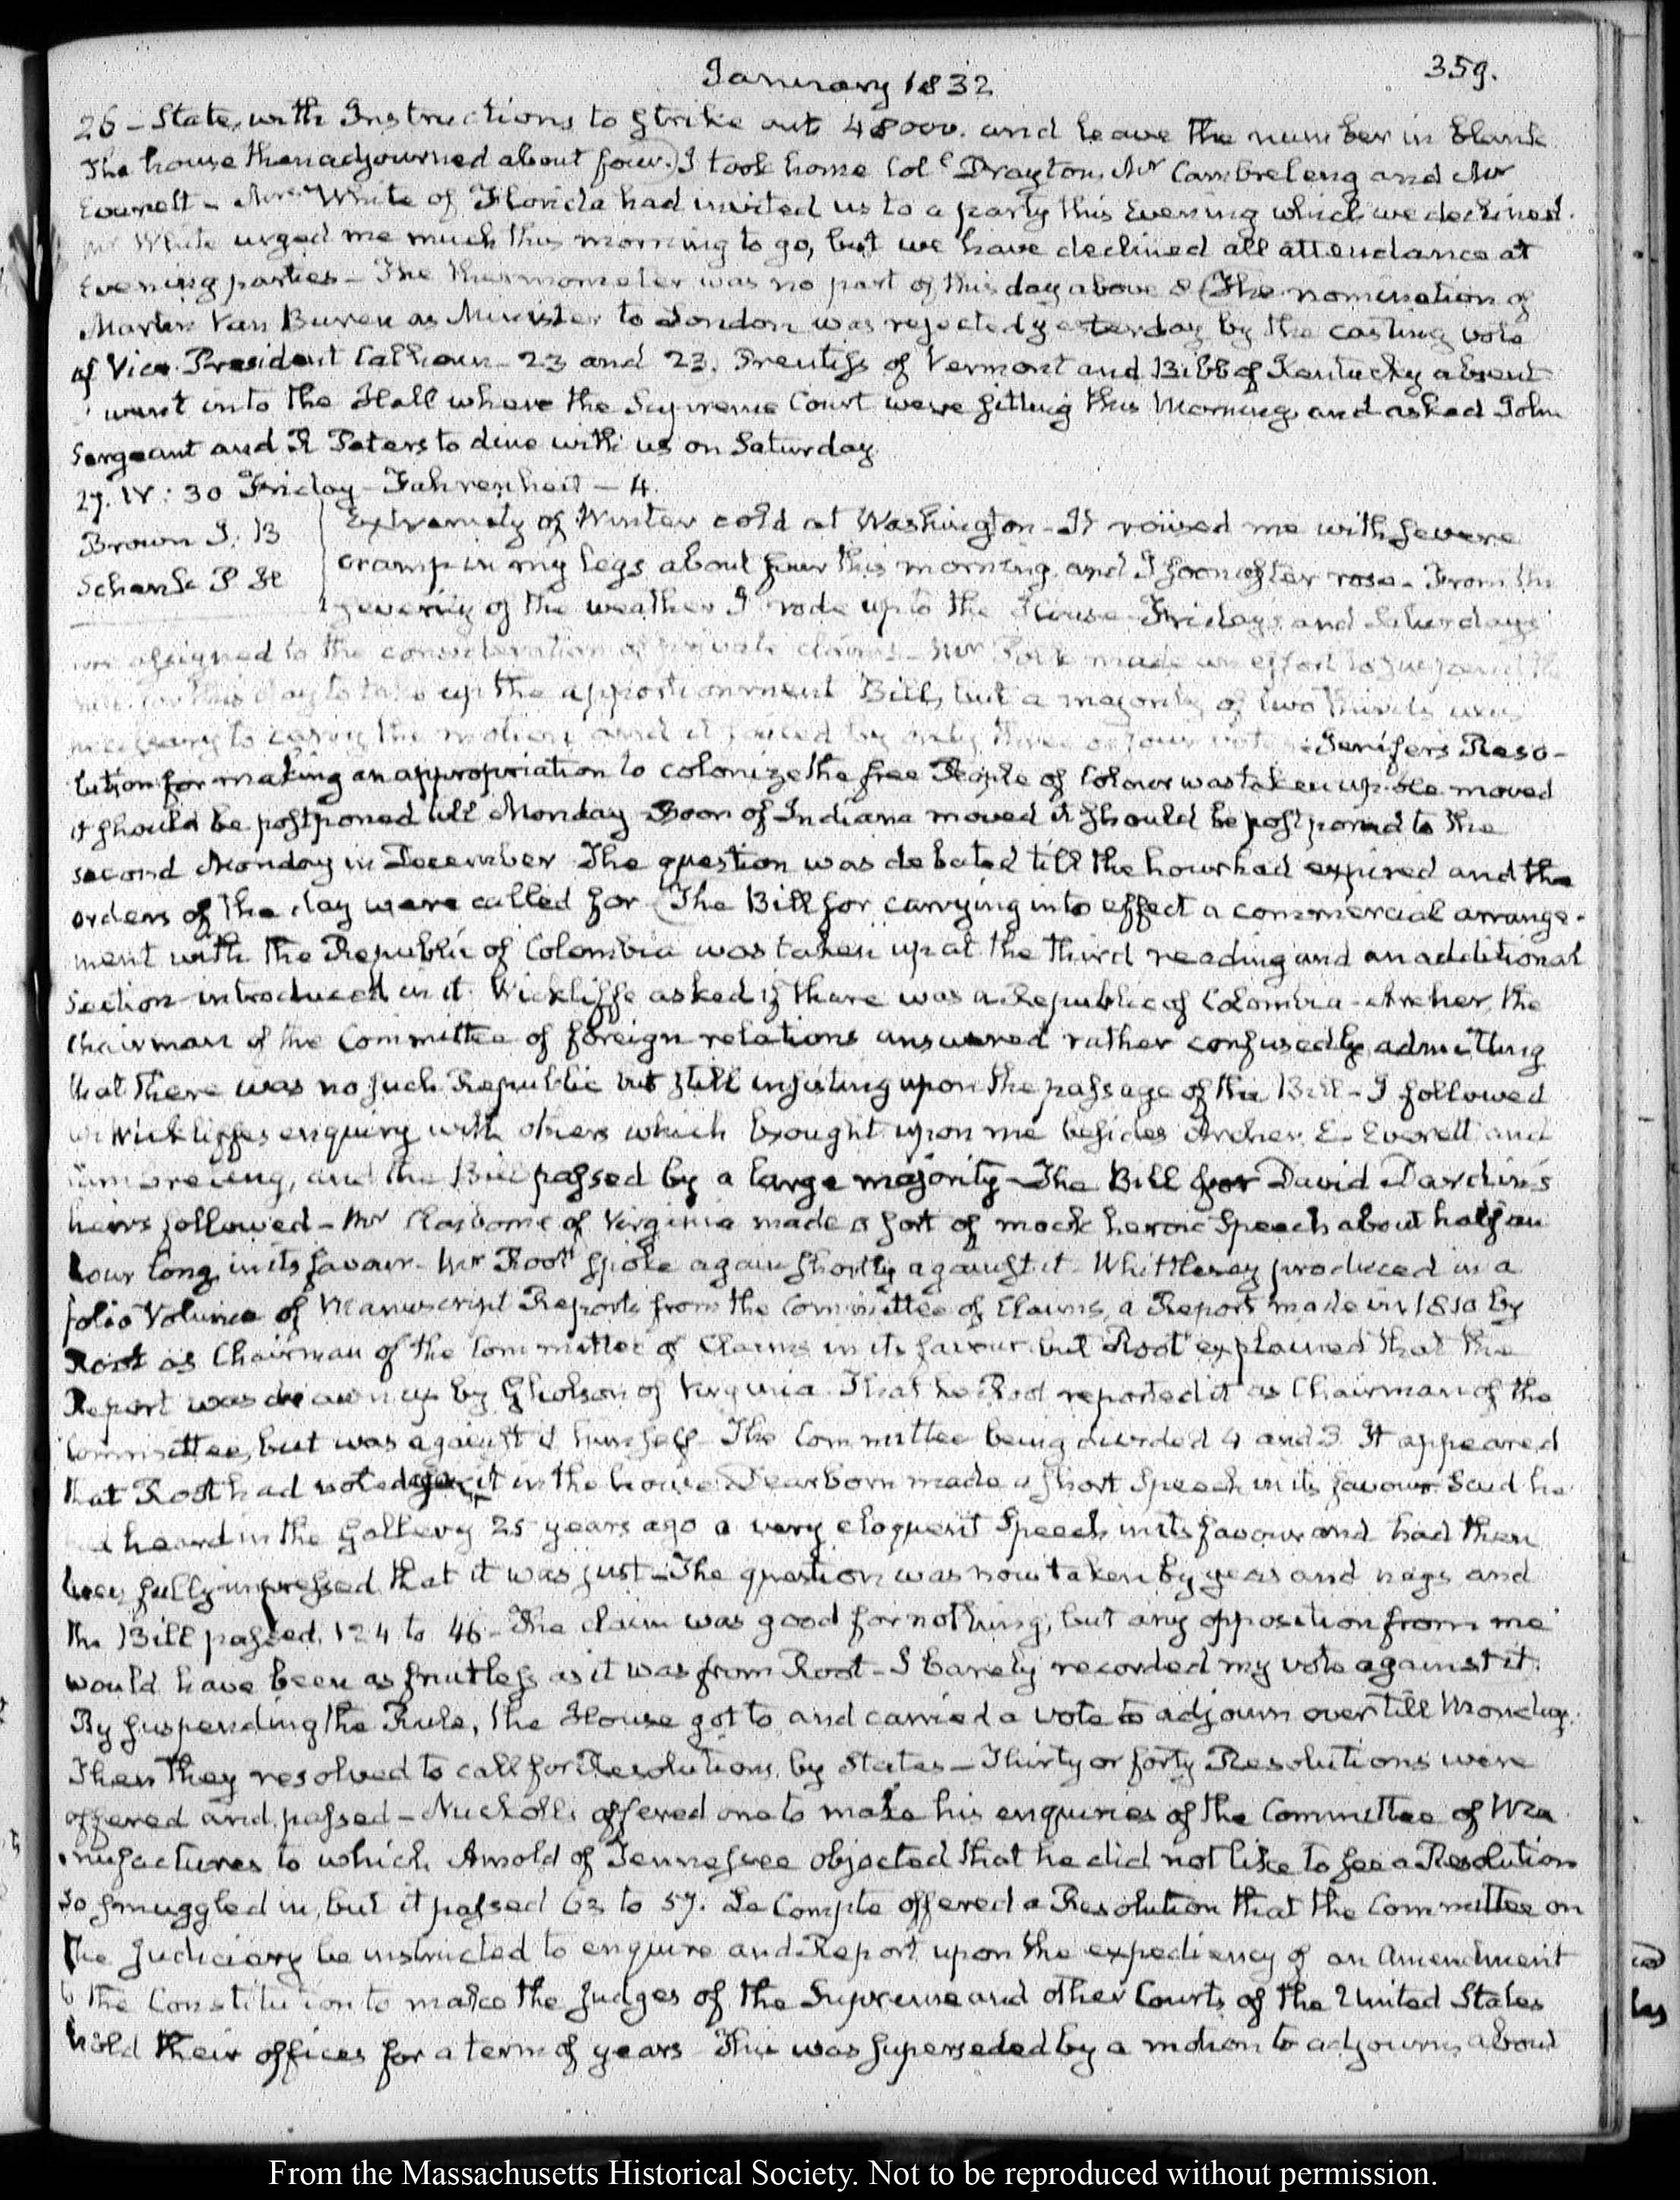 January 1832
359.
26 - State, with Instructions to strike out 48000. and leave the number in blank
The house then adjourned about four. I took home Col.l Drayton, Mr Cambreleng and Mr
Everett - Mrs White of Florida had invited us to a party this Evening which we declined.
Mr White urged me much this morning to go, but we have declined all attendance at
Evening parties - The thermometer was no part of this day above 8 (The nomination of
Martin Van Buren as Minister to London was rejected yesterday by the casting vote
of Vice President Calhoun - 23 and 23. Prentiss of Vermont and Bibb of Kentucky absent
I went into the Hall where the Supreme Court were sitting this Morning, and asked John
Sergeant and R Peters to dine with us on Saturday
27. IV: 30 Friday - Fahrenheit - 4.
Brown J. B
Schenk F He
Extremity of Winter cold at Washington - It roused me with severe
cramp in my legs about four this morning and I soon after rose - From the
severity of the weather I rode up to the House. Fridays and Saturdays
are assigned to the consideration of private claims - Mr Polk made an effort to suspend the
rule for this day to take up the apportionment Bill, but a majority of two thirds was
necessary to carry the motion and it failed by only three or four votes. Jenifer's Reso-
lution for making an appropriation to colonize the free People of Colour was taken up. He moved
it should be postponed till Monday Boon of Indiana moved it should be postponed to the
second Monday in December The question was debated till the hour had expired and the
orders of the day were called for (The Bill for carrying into effect a commercial arrange-
ment with the Republic of Colombia was taken up at the third reading and an additional
section introduced in it. Wickliffe asked if there was a Republic of Colombia - Archer, the
Chairman of the Committee of foreign relations answered rather confusedly, admitting
that there was no such Republic but still insisting upon the passage of the Bill - I followed
Wickliffe's enquiry with others which brought upon me besides Archer, E. Everett and
Cambreleng, and the Bill passed by a large majority - The Bill for David Dardin's
heirs followed - Mr Claiborne of Virginia made a sort of mock heroic Speech about half an
hour long, in its favour. Mr Root spoke again shortly against it. Whittlesey produced in a
folio Volume of Manuscript Reports from the Committee of Claims, a Report made in 1810 by
Root as Chairman of the Committee of Claims in its favour but Root explained that the
Report was drawn up by Gholson of Virginia. That he Root reported it as Chairman of the
Committee, but was against it himself - The Committee being divided 4 and 3. It appeared
that Root had voted against it in the house. Dearborn made a short Speech in its favour. Said he
had heard in the Gallery 25 years ago a very eloquent Speech in its favour and had then
been fully impressed that it was just - The question was now taken by yeas and nays and
the Bill passed, 124 to 46 - The claim was good for nothing, but any opposition from me
would have been as fruitless as it was from Root - I barely recorded my vote against it.
By suspending the Rule, the House got to and carried a vote to adjourn over till Monday.
Then they resolved to call for Resolutions by States - Thirty or forty Resolutions were
offered and passed - Nuckolls offered one to make his enquiries of the Committee of Ma
nufactures, to which Arnold of Tennessee objected that he did not like to see a Resolution
so smuggled in, but it passed 63 to 57. Le Compte offered a Resolution that the Committee on
the Judiciary be instructed to enquire and Report upon the expediency of an Amendment
to the Constitution to make the Judges of the Supreme and other Courts of the United States
hold their offices for a term of years This was superseded by a motion to adjourn, about
From the Massachusetts Historical Society. Not to be reproduced without permission.